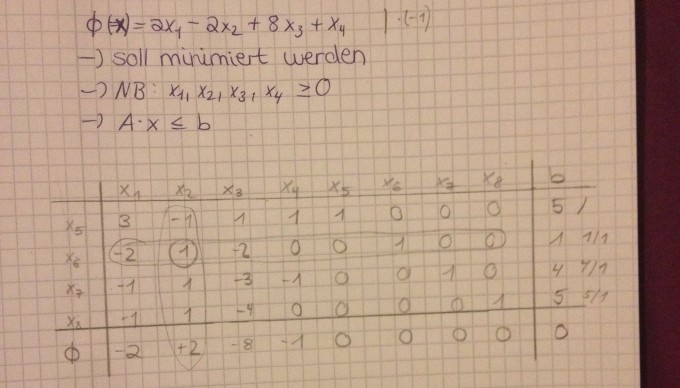 ϕ(x) = 2x₁ - 2x₂ + 8x₃ + x₄ | ·(-1)
→ soll minimiert werden
→ NB: x₁, x₂, x₃, x₄ ≥ 0
→ A·x ≤ b
x₁ x₂ x₃ x₄ x₅ x₆ x₇ x₈ b
x₅ 3 -1 1 1 1 0 0 0 5 /
x₆ -2 1 -2 0 0 1 0 0 1 1/1
x₇ -1 1 -3 -1 0 0 1 0 4 4/1
x₈ -1 1 -4 0 0 0 0 1 5 5/1
ϕ -2 +2 -8 -1 0 0 0 0 0